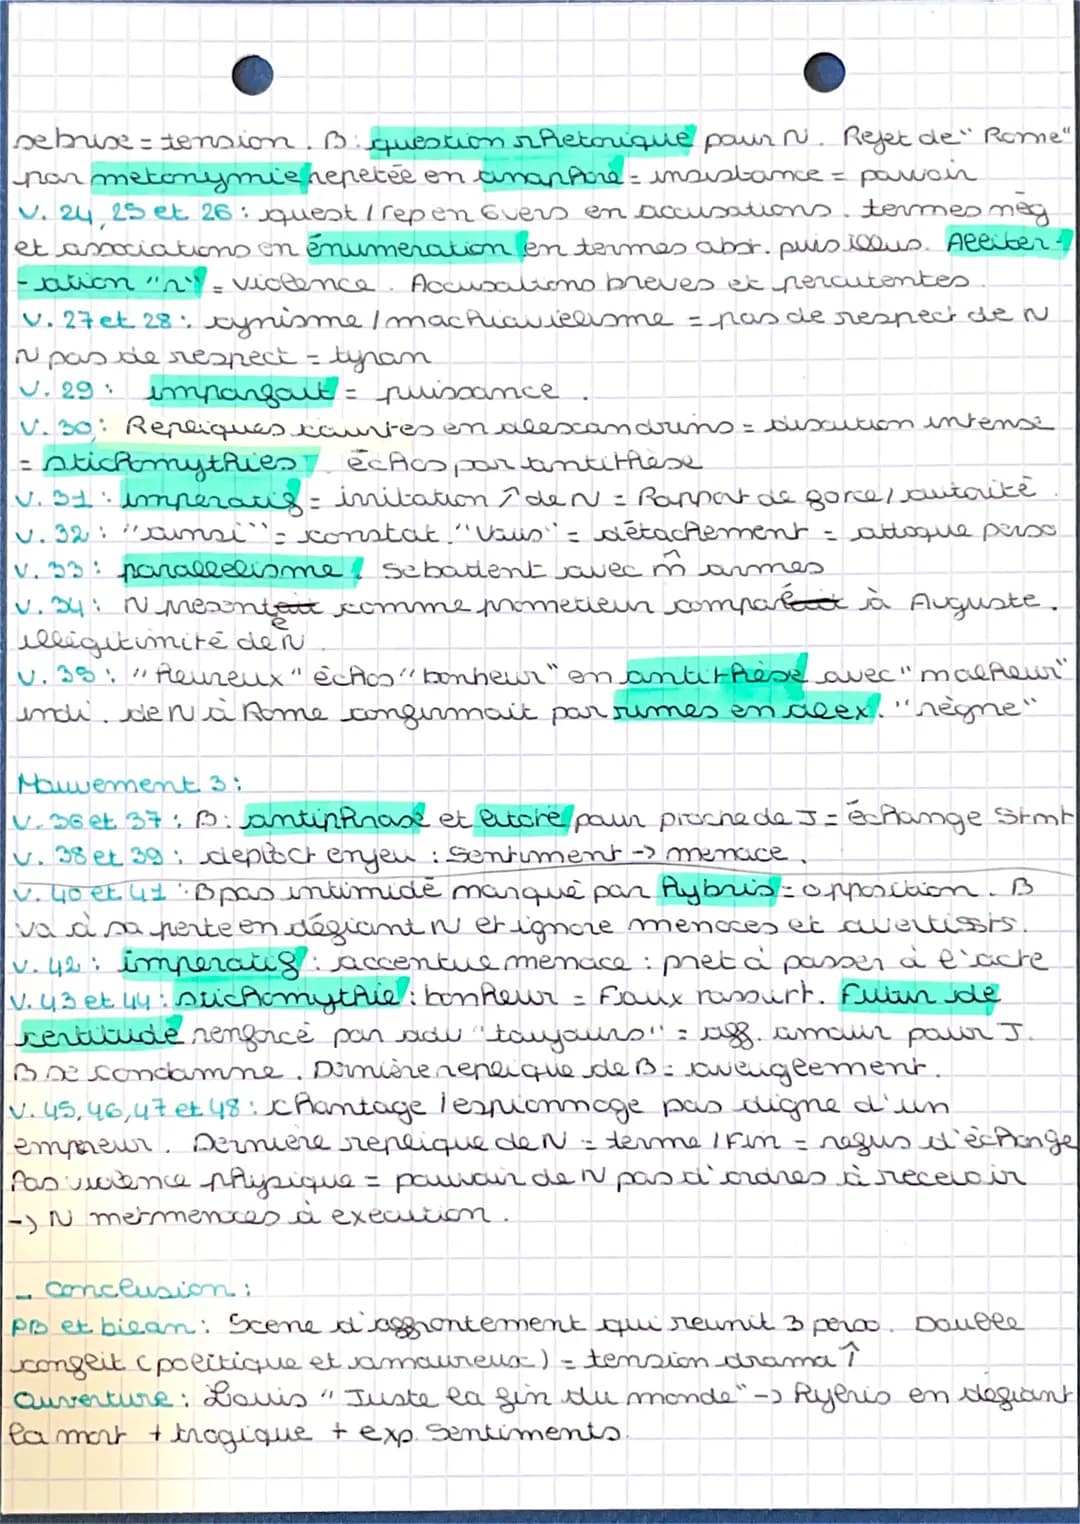 se brise = tension. B : question rhetorique pour N. Rejet de "Rome"
par metonymie repetée en anaphore = insistance = pouvoir
V. 24, 25 et 26 : quest / rep en 6vers en accusations. termes nég
et associations en énumeration en termes abst. puis illus. Alliter-
-ation "r" = violence. Accusations breves et percutentes.
V. 27 et 28 : cynisme / machiavielisme = pas de respect de N
N pas de respect = tyran
V. 29 : imparfait = puissance.
V. 30 : Repliques courtes en alescandrins = discution intense
= stichomythies, échos par antithèse
V. 31 : imperatif = irritation ↑ de N = Rapport de force / autorité.
V. 32 : "ainsi" = constat. "Vous" = détachement = attaque perso
V. 33 : parallelisme : se batent avec m̂ armes
V. 34 : N presenté comme prometteur comparé à Auguste.
illégitimité de N.
V. 35 : "Heureux" échos "bonheur" en antithèse avec "malheur"
indi. de N à Rome confirmait par rimes en alex. "règne"
Mouvement 3 :
V. 36 et 37 : B : antiphrase et litote pour proche de J = échange Stmt
V. 38 et 39 : déplact enjeu : Sentiment -> menace.
V. 40 et 41 : B pas intimidé marqué par Hybris = opposition. B
va à sa perte en défiant N et ignore menaces et avertissts.
V. 42 : imperatif : accentue menace : pret à passer à l'acte
V. 43 et 44 : stichomythie : bonheur = Faux rassurt. Futur de
certitude renforcé par adv "toujours" = aff. amour pour J.
B se condamne. Dernière replique de B = aveuglement.
V. 45, 46, 47 et 48 : chantage / espionnage pas digne d'un
empreur. Dernière replique de N = terme / Fin = refus d'échange
Pas violence physique = pouvoir de N pas d'ordres à recevoir
-> N met menaces à execution.
- Conclusion :
PB et bilan : Scene d'affrontement qui reunit 3 perso. Double
conflit (politique et amoureux) = tension drama ↑
Ouverture : Louis "Juste la fin du monde" -> Hybris en défiant
la mort + tragique + exp. Sentiments.